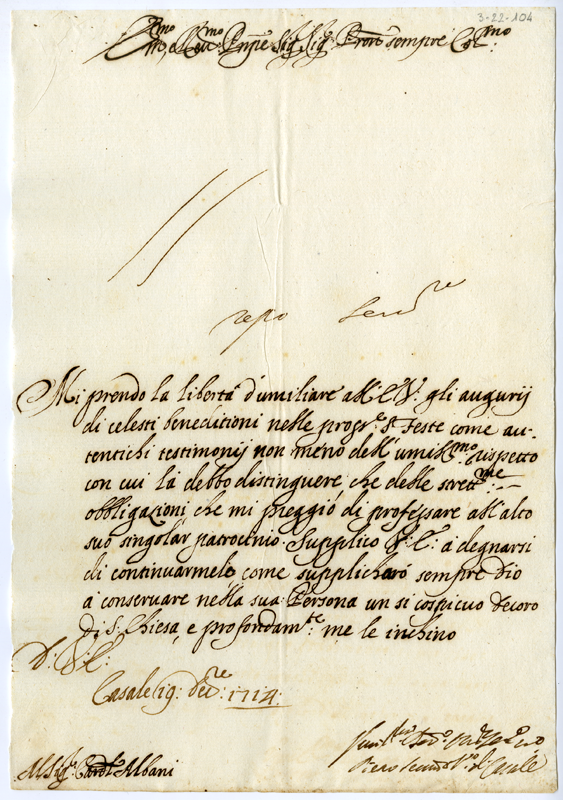 3-22-104
Em.mo e Rev.mo Pnpe Sig. Sig. Prone sempre Col.mo
Mi prendo la libertà d'umiliare all'E.V: gli augurij
di celesti beneditioni nelle pross.e S.te Feste come au-
tentichi testimonij non meno dell' umiliss.mo rispetto
con cui la debbo distinguere che delle strett.me
obbligazioni che mi preggio di professare all'alto
suo singolar patrocinio. Supplico V.E: a degnarsi
di continuarmelo come supplicharò sempre Dio
a conservare nella sua Persona un si cospicuo decoro
di S. Chiesa, e profondam.te me le inchino
D: V.E:
Casale 19: Xbre: 1714:
Al Sig.r Card.le Albani